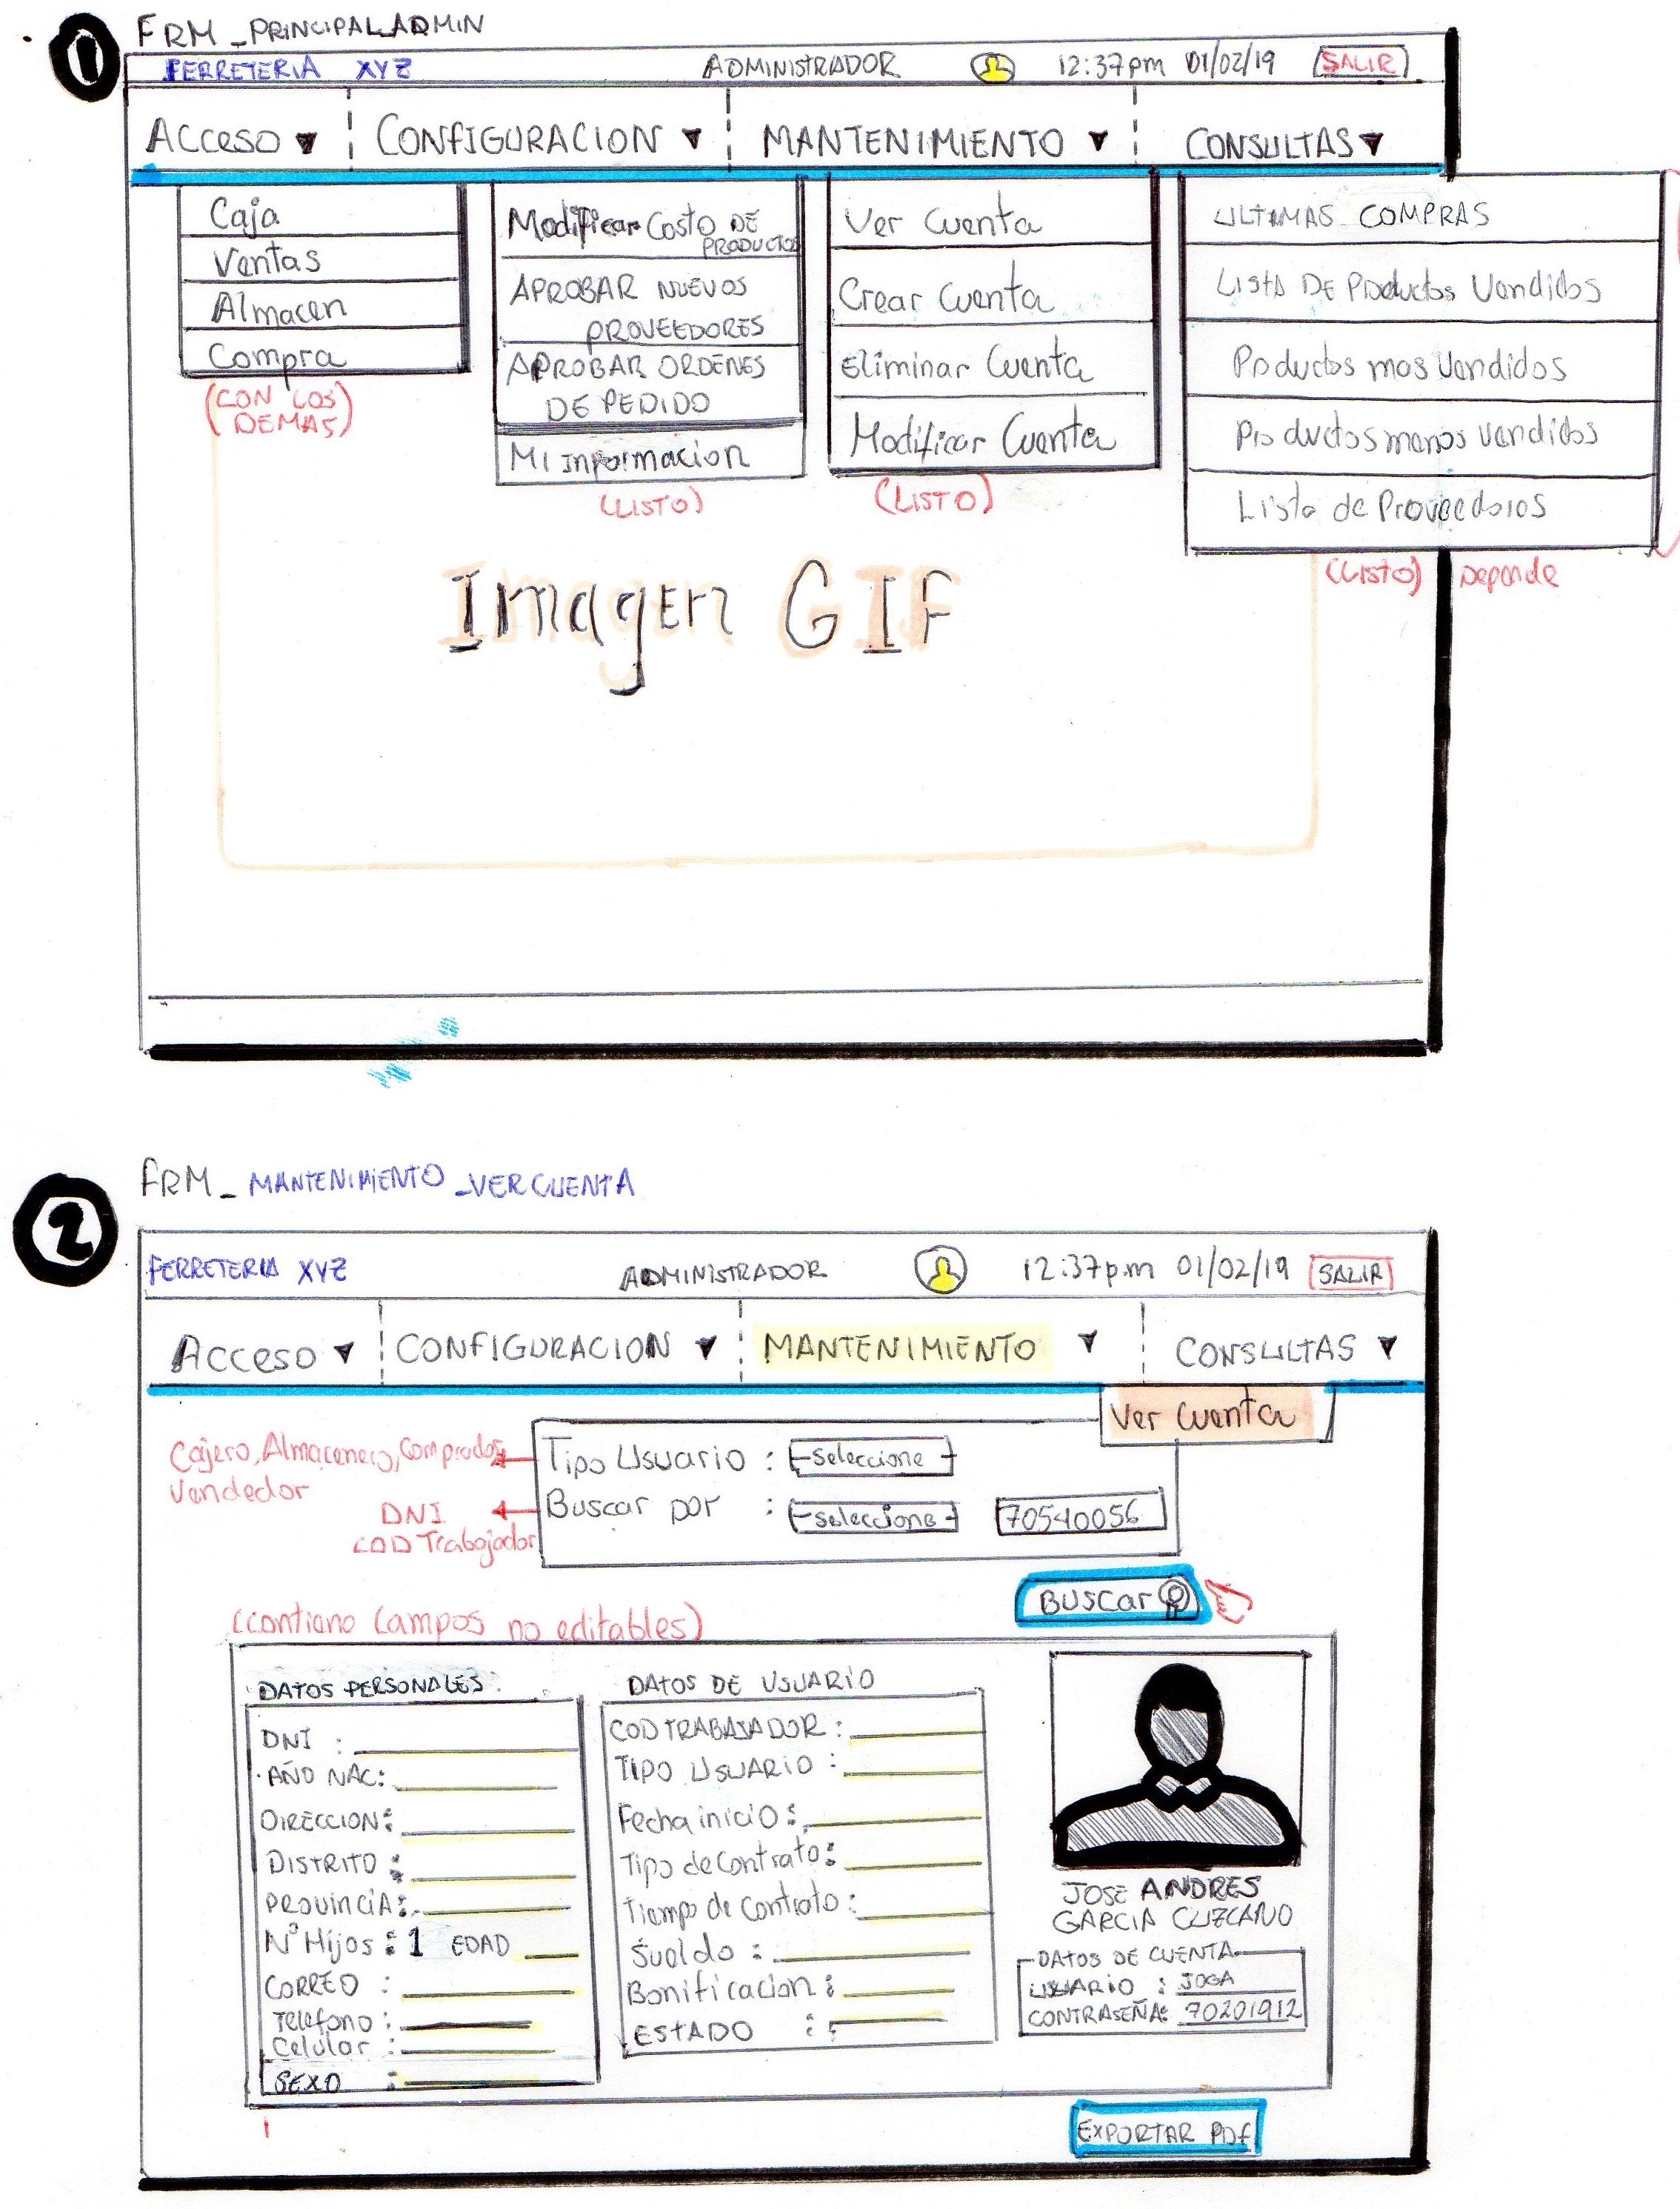 1
FRM_PRINCIPAL_ADMIN
FERRETERIA XYZ ADMINISTRADOR 12:37pm 01/02/19 SALIR
Acceso ▼ CONFIGURACION ▼ MANTENIMIENTO ▼ CONSULTAS ▼
Caja
Ventas
Almacen
Compra
(CON LOS
DEMAS)
Modificar Costo DE
PRODUCTOS
APROBAR NUEVOS
PROVEEDORES
APROBAR ORDENES
DE PEDIDO
MI Informacion
(LISTO)
Ver Cuenta
Crear Cuenta
Eliminar Cuenta
Modificar Cuenta
(LISTO)
ULTIMAS COMPRAS
LISTA DE Productos Vendidos
Productos mas Vendidos
Productos menos Vendidos
Lista de Proveedores
(LISTO) Depende
Imagen GIF
2
FRM_MANTENIMIENTO_VERCUENTA
FERRETERIA XYZ ADMINISTRADOR 12:37p.m 01/02/19 SALIR
Acceso ▼ CONFIGURACION ▼ MANTENIMIENTO ▼ CONSULTAS ▼
Ver Cuenta
Cajero, Almacenero, Comprador
Vendedor
Tipo Usuario : -seleccione-
DNI
COD Trabajador
Buscar por : -seleccione- 70540056
BUSCar
(Contiene Campos no editables)
DATOS PERSONALES:
DNI :
AÑO NAC:
DIRECCION:
DISTRITO :
PROVINCIA:
N° Hijos : 1 EDAD
CORREO :
Telefono :
Celular :
SEXO :
DATOS DE USUARIO
COD TRABAJADOR :
TIPO USUARIO :
Fecha inicio :
Tipo de Contrato:
Tiempo de Contrato:
Sueldo :
Bonificacion :
ESTADO :
JOSE ANDRES
GARCIA CUZCANO
DATOS DE CUENTA
USUARIO : JOGA
CONTRASEÑA: 70201912
EXPORTAR PDF